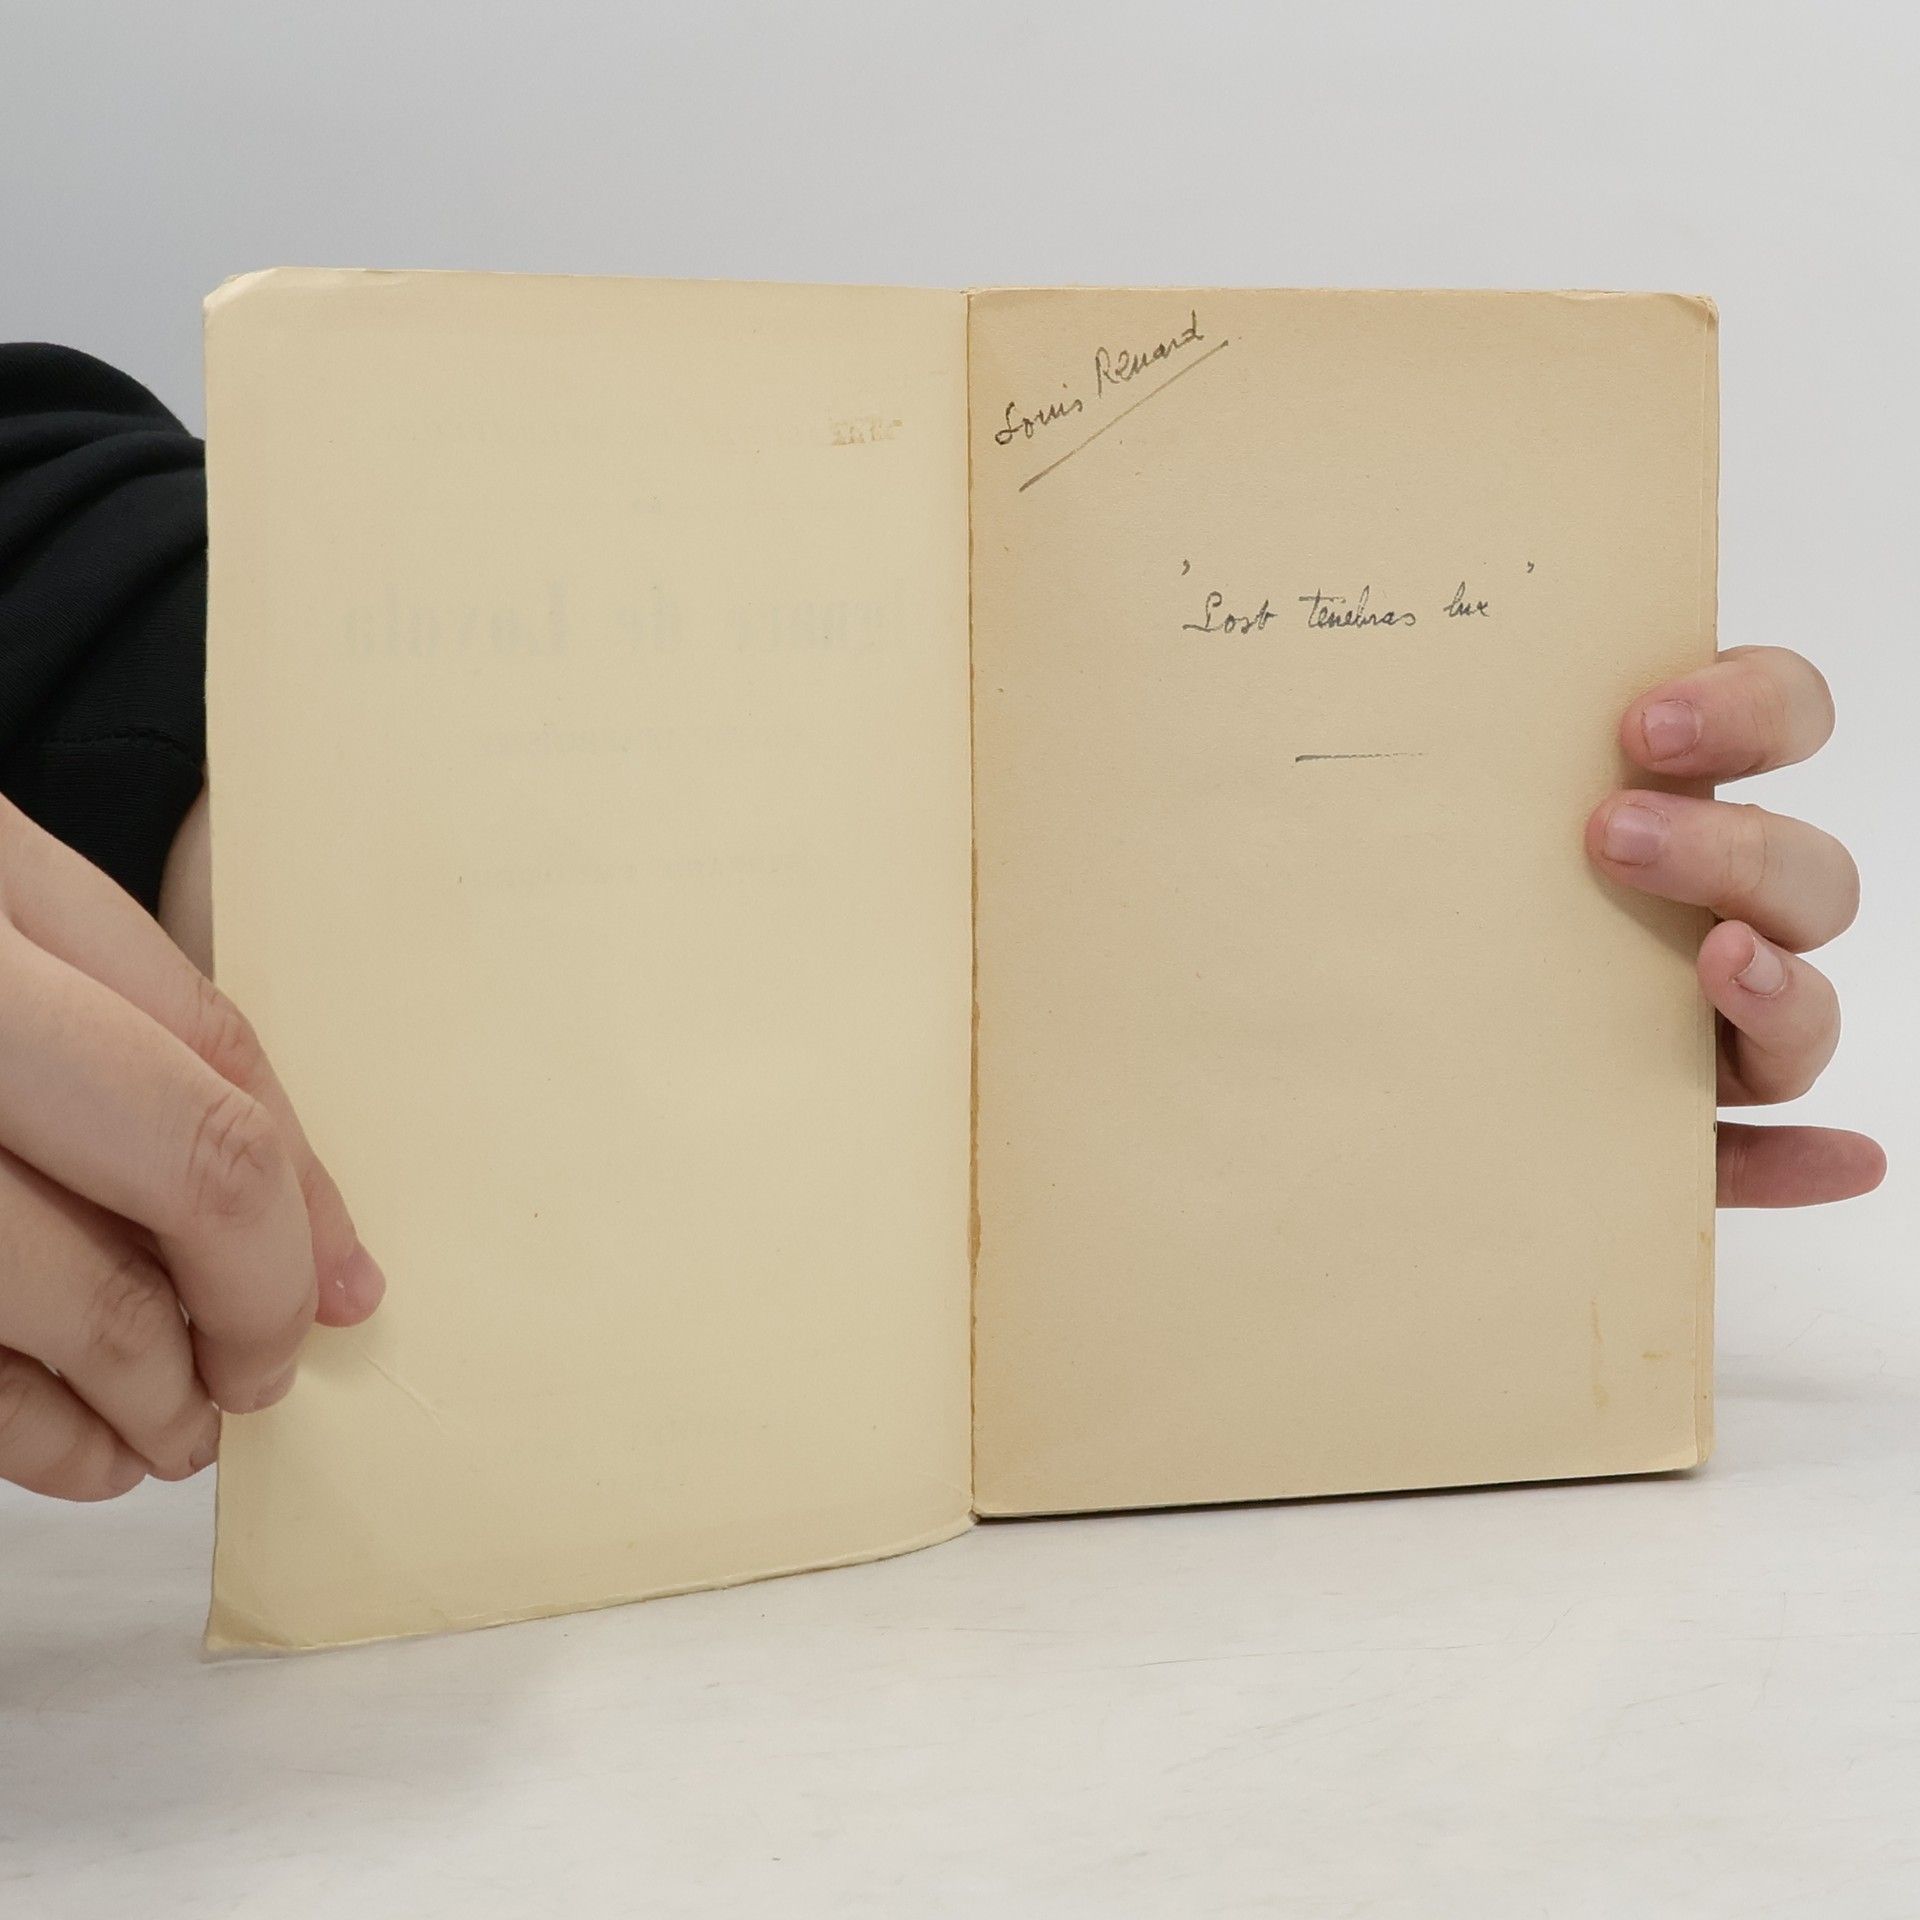 Louis Renard
"Post tenebras lux"